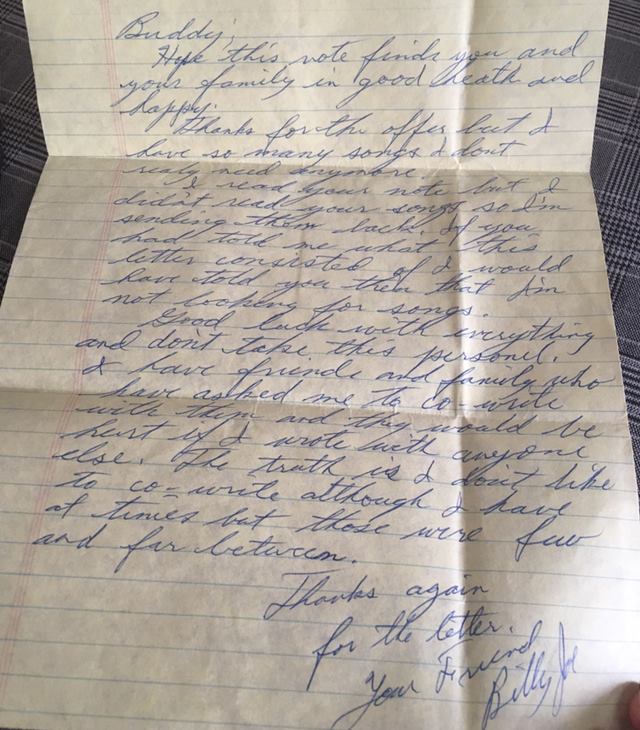 Buddy,
Hope this note finds you and
your family in good heath and
happy.
Thanks for the offer but I
have so many songs I dont
realy need anymore.
I read your note but I
didn't read your songs so I'm
sending them back. If you
had told me what this
letter consisted of I would
have told you then that I'm
not looking for songs.
Good luck with everything
and dont take this personel.
I have friends and family who
have asked me to co-write
with them and they would be
hurt if I wrote with anyone
else. The truth is I don't like
to co-write although I have
at times but those were few
and far between.
Thanks again
for the letter.
Your Friend
Billy Joe